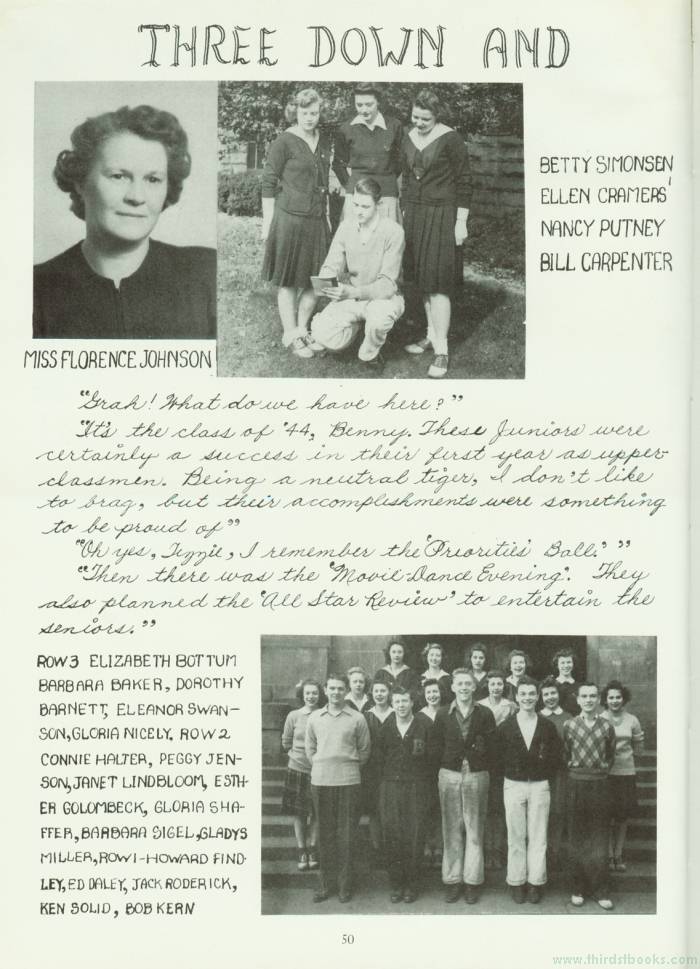 THREE DOWN AND
BETTY SIMONSEN
ELLEN CRAMERS'
NANCY PUTNEY
BILL CARPENTER
MISS FLORENCE JOHNSON
"Grah! What do we have here?"
"It's the class of '44, Benny. These Juniors were
certainly a success in their first year as upper-
classmen. Being a neutral tiger, I don't like
to brag, but their accomplishments were something
to be proud of"
"Oh yes, Tizzie, I remember the 'Priorities' Ball.'"
"Then there was the 'Movie-Dance Evening'. They
also planned the 'All Star Review' to entertain the
seniors."
ROW 3 ELIZABETH BOTTUM
BARBARA BAKER, DOROTHY
BARNETT, ELEANOR SWAN-
SON, GLORIA NICELY. ROW 2
CONNIE HALTER, PEGGY JEN-
SON, JANET LINDBLOOM, ESTH-
ER GOLOMBECK, GLORIA SHA-
FFER, BARBARA SIGEL, GLADYS
MILLER, ROW 1-HOWARD FIND-
LEY, ED DALEY, JACK RODERICK,
KEN SOLID, BOB KERN
50
www.thirdstbooks.com